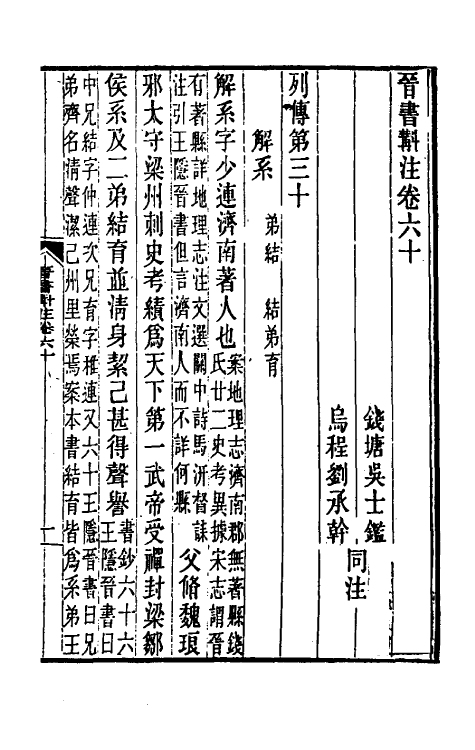 晉書斠注卷六十
錢塘吳士鑑
烏程劉承幹
同注
列傳第三十
解系 弟結 結弟育
解系字少連濟南著人也
案地理志濟南郡無著縣錢
氏廿二史考異據宋志謂晉
有著縣詳地理志注文選關中詩馬汧督誄
注引王隱晉書但言濟南人而不詳何縣
父脩魏琅
邪太守梁州刺史考績爲天下第一武帝受禪封梁鄒
侯系及二弟結育並清身絜己甚得聲譽
書鈔六十六
王隱晉書曰
中兄結字仲連次兄育字稚連又六十王隱晉書曰兄
弟齊名清聲潔己州里榮焉案本書結育皆爲系弟王
晉書斠注卷六十
一